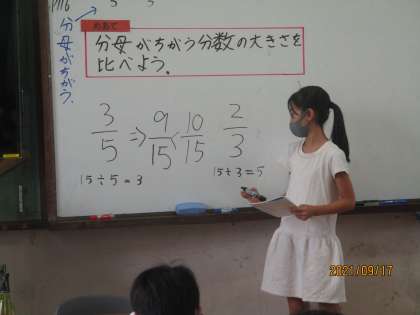 P116
5 5
分母がちがう。
めあて
分母がちがう分数の大きさを
比べよう。
3/5 ⇒ 9/15 < 10/15 2/3
15÷5=3
15÷3=5
2021/09/17